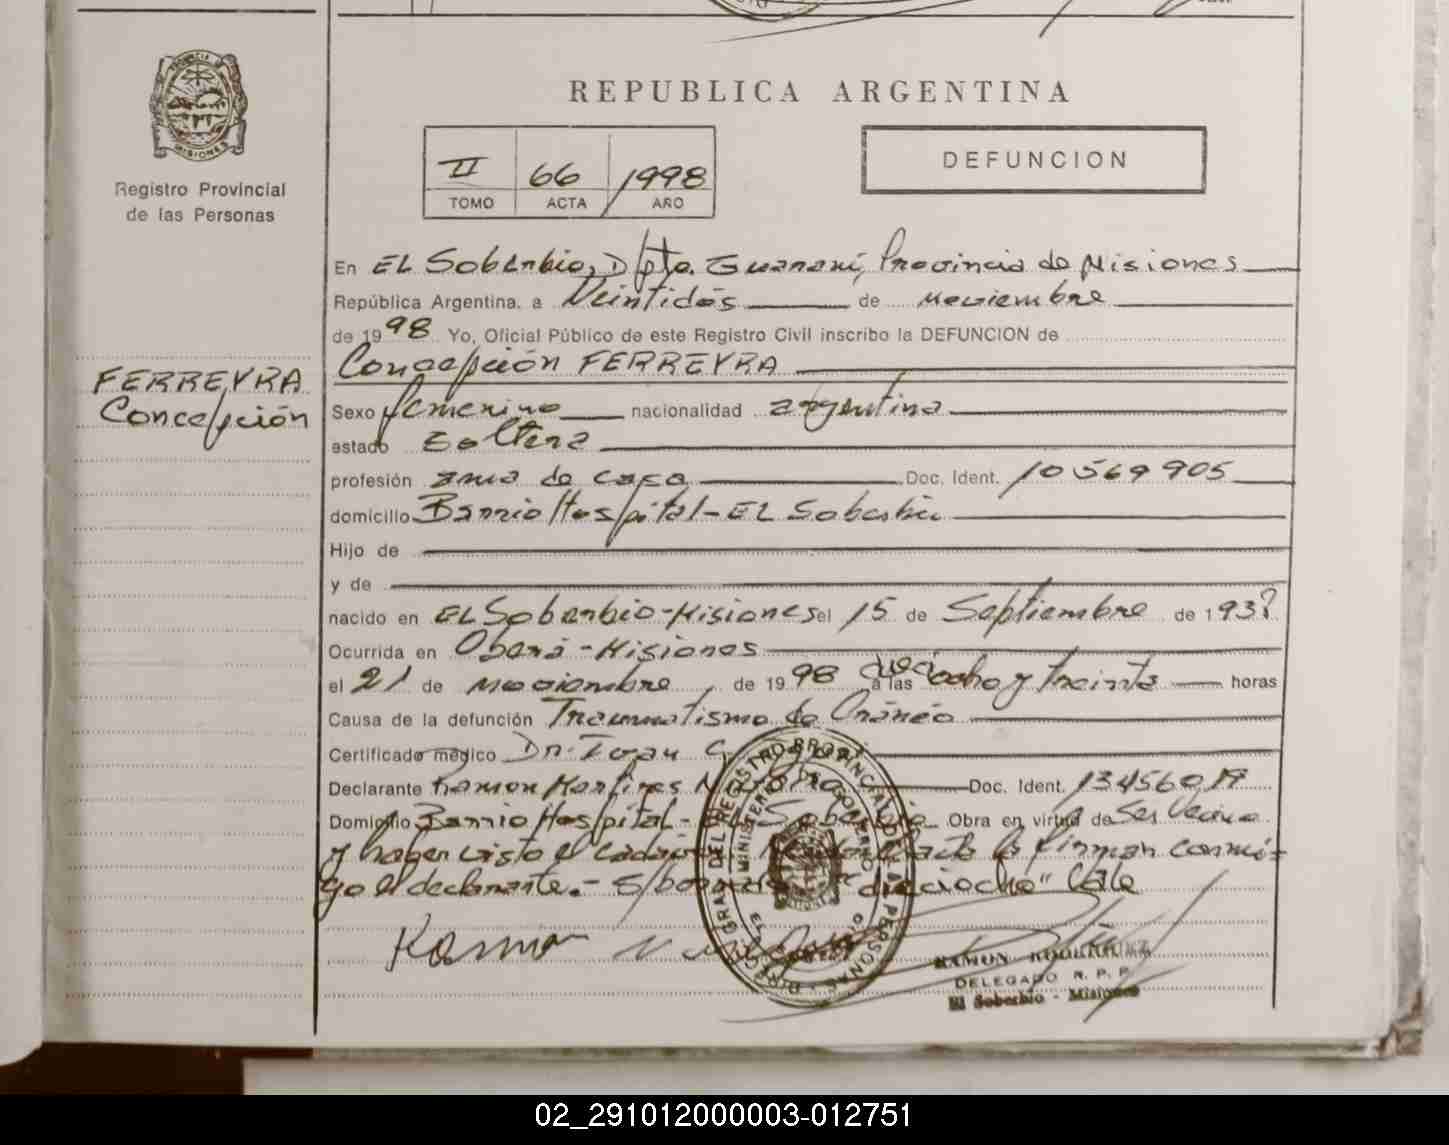 REPUBLICA ARGENTINA
PROVINCIA DE
MISIONES
Registro Provincial
de las Personas
II 66 1998
TOMO ACTA AÑO
DEFUNCION
En EL Soberbio, Dpto. Guaraní, Provincia de Misiones
República Argentina, a Veintidós de noviembre
de 1998 Yo, Oficial Público de este Registro Civil inscribo la DEFUNCION de
FERREYRA
Concepción
Concepción FERREYRA
Sexo femenino nacionalidad argentina
estado soltera
profesión ama de casa Doc. Ident. 10569905
domicilio Barrio Hospital - EL Soberbio
Hijo de
y de
nacido en EL Soberbio - Misiones el 15 de Septiembre de 193?
Ocurrida en Oberá - Misiones
el 21 de noviembre de 1998 a las dieciocho y treinta horas
Causa de la defunción Traumatismo de Cráneo
Certificado médico Dr. Ivan C
Declarante Ramon Martires Doc. Ident.
Domicilio Barrio Hospital - EL Soberbio Obra en virtud de Ser Vecino
y haber visto el cadáver acta la firman conmi-
go el declarante.- S/borrado "dieciocho" Vale
Ramon
RAMON RODRIGUEZ
DELEGADO R. P. P.
El Soberbio - Misiones
02_291012000003-012751